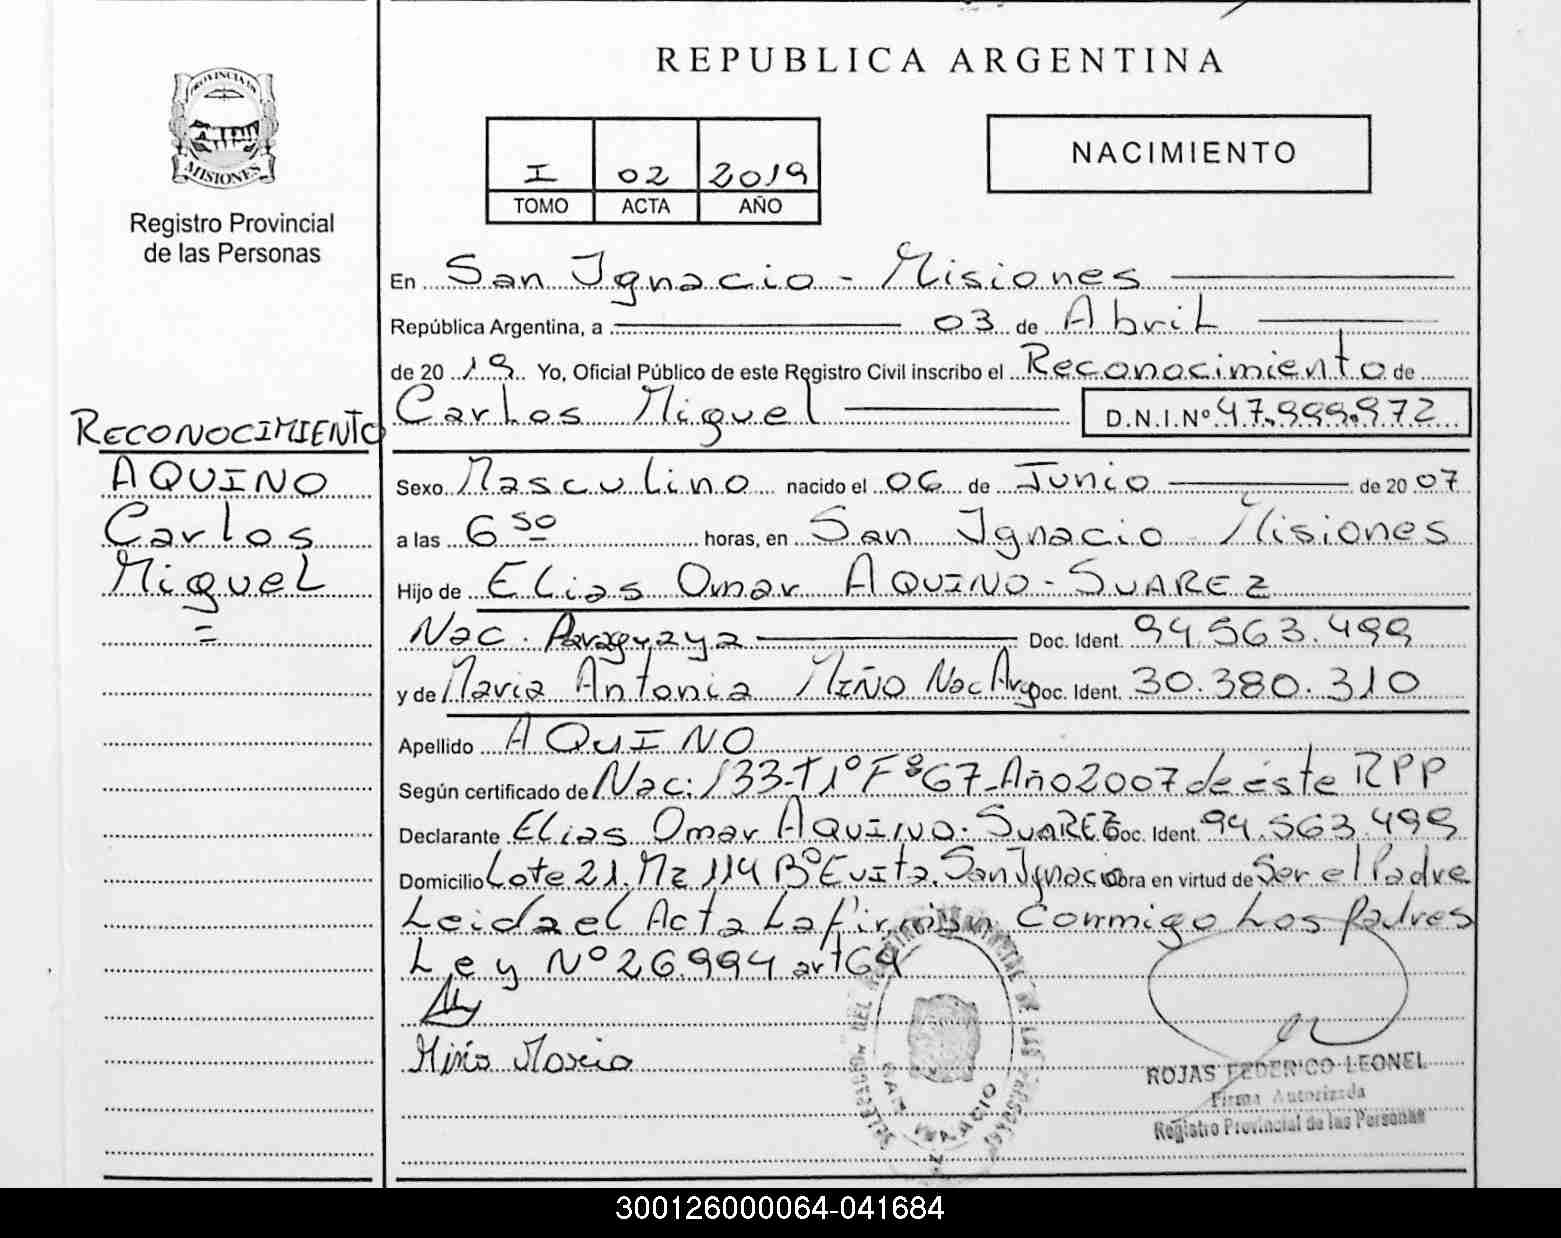 REPUBLICA ARGENTINA
PROVINCIA DE
MISIONES
Registro Provincial
de las Personas
I 02 2019
TOMO ACTA AÑO
NACIMIENTO
En San Ignacio - Misiones
República Argentina, a 03 de Abril
de 2019 Yo, Oficial Público de este Registro Civil inscribo el Reconocimiento de
Carlos Miguel D.N.I.Nº 47.999.972
RECONOCIMIENTO
AQUINO
Carlos
Miguel
Sexo Masculino nacido el 06 de Junio de 2007
a las 6 50 horas, en San Ignacio Misiones
Hijo de Elias Omar AQUINO - SUAREZ
Nac. Paraguaya Doc. Ident. 94.563.499
y de Maria Antonia MIÑO Nac Arg Doc. Ident. 30.380.310
Apellido AQUINO
Según certificado de Nac: 133-T1º Fº67-Año2007 de éste RPP
Declarante Elias Omar AQUINO - SUAREZ Doc. Ident. 94.563.499
Domicilio Lote 21. Mz 114 Bº Evita. San Ignacio obra en virtud de Ser el Padre
Leida el Acta La firman Conmigo Los padres
Ley Nº 26.994 art 64
Miño Maria
SAN IGNACIO
ROJAS FEDERICO LEONEL
Firma Autorizada
Registro Provincial de las Personas
300126000064-041684